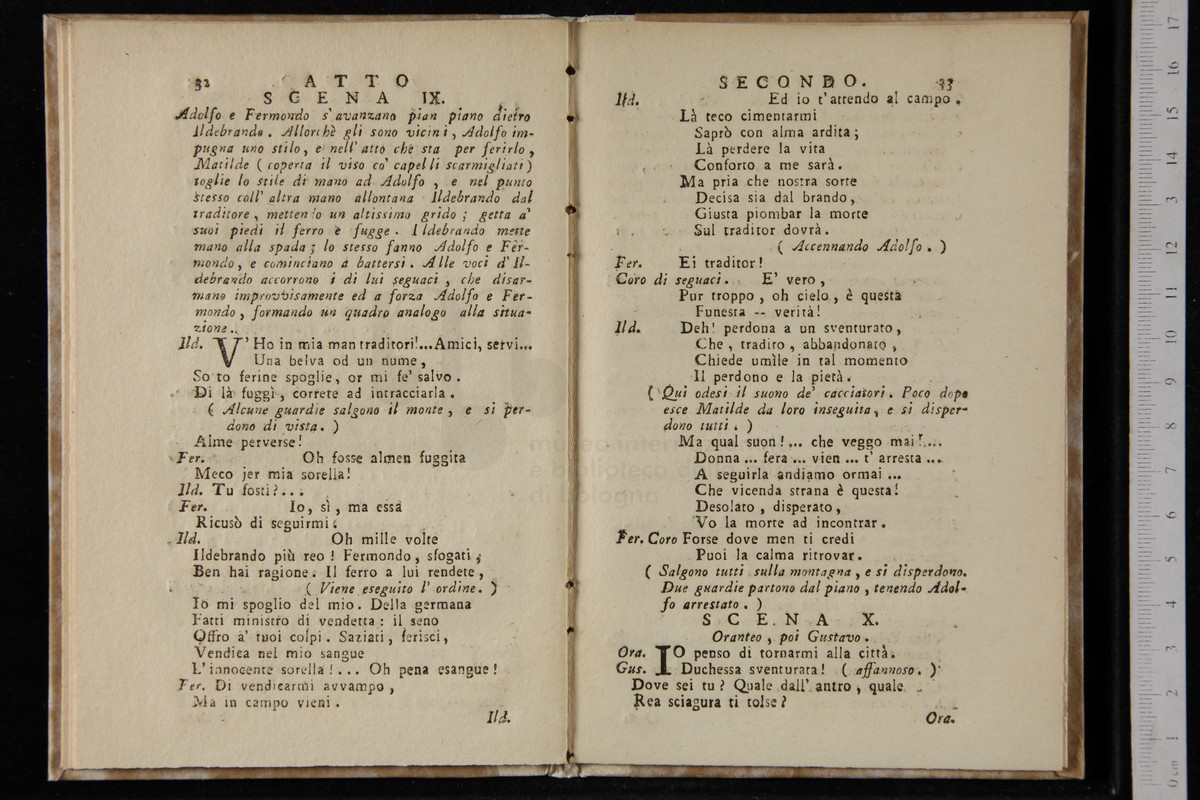 32 ATTO
SCENA IX.
Adolfo e Fermondo s' avanzano pian piano dietro
Ildebrando. Allorchè gli sono vicini, Adolfo im-
pugna uno stilo, e nell' atto che sta per ferirlo,
Matilde (coperta il viso co' capelli scarmigliati)
toglie lo stile di mano ad Adolfo, e nel punto
stesso coll' altra mano allontana Ildebrando dal
traditore, mettendo un altissimo grido; getta a'
suoi piedi il ferro e fugge. Ildebrando mette
mano alla spada; lo stesso fanno Adolfo e Fer-
mondo, e cominciano a battersi. Alle voci d' Il-
debrando accorrono i di lui seguaci, che disar-
mano improvvisamente ed a forza Adolfo e Fer-
mondo, formando un quadro analogo alla situa-
zione..
Ild. V' Ho in mia man traditori!...Amici, servi...
Una belva od un nume,
Sotto ferine spoglie, or mi fe' salvo.
Di là fuggì, correte ad intracciarla.
( Alcune guardie salgono il monte, e si per-
dono di vista. )
Alme perverse!
Fer. Oh fosse almen fuggita
Meco jer mia sorella!
Ild. Tu fosti?...
Fer. Io, sì, ma essa
Ricusò di seguirmi.
Ild. Oh mille volte
Ildebrando più reo! Fermondo, sfogati;
Ben hai ragione. Il ferro a lui rendete,
( Viene eseguito l' ordine. )
Io mi spoglio del mio. Della germana
Fatti ministro di vendetta: il seno
Offro a' tuoi colpi. Saziati, ferisci,
Vendica nel mio sangue
L' innocente sorella!... Oh pena esangue!
Fer. Di vendicarmi avvampo,
Ma in campo vieni.
Ild.
SECONDO. 33
Ild. Ed io t' attendo al campo.
Là teco cimentarmi
Saprò con alma ardita;
Là perdere la vita
Conforto a me sarà.
Ma pria che nostra sorte
Decisa sia dal brando,
Giusta piombar la morte
Sul traditor dovrà.
( Accennando Adolfo. )
Fer. Ei traditor!
Coro di seguaci. E' vero,
Pur troppo, oh cielo, è questa
Funesta -- verità!
Ild. Deh! perdona a un sventurato,
Che, tradito, abbandonato,
Chiede umìle in tal momento
Il perdono e la pietà.
( Qui odesi il suono de' cacciatori. Poco dopo
esce Matilde da loro inseguita, e si disper-
dono tutti. )
Ma qual suon!... che veggo mai!...
Donna... fera... vien... t' arresta...
A seguirla andiamo ormai...
Che vicenda strana è questa!
Desolato, disperato,
Vo la morte ad incontrar.
Fer. Coro Forse dove men ti credi
Puoi la calma ritrovar.
( Salgono tutti sulla montagna, e si disperdono.
Due guardie partono dal piano, tenendo Adol-
fo arrestato. )
SCENA X.
Oranteo, poi Gustavo.
Ora. IO penso di tornarmi alla città.
Gus. Duchessa sventurata! ( affannoso. )
Dove sei tu? Quale dall' antro, quale
Rea sciagura ti tolse?
Ora.